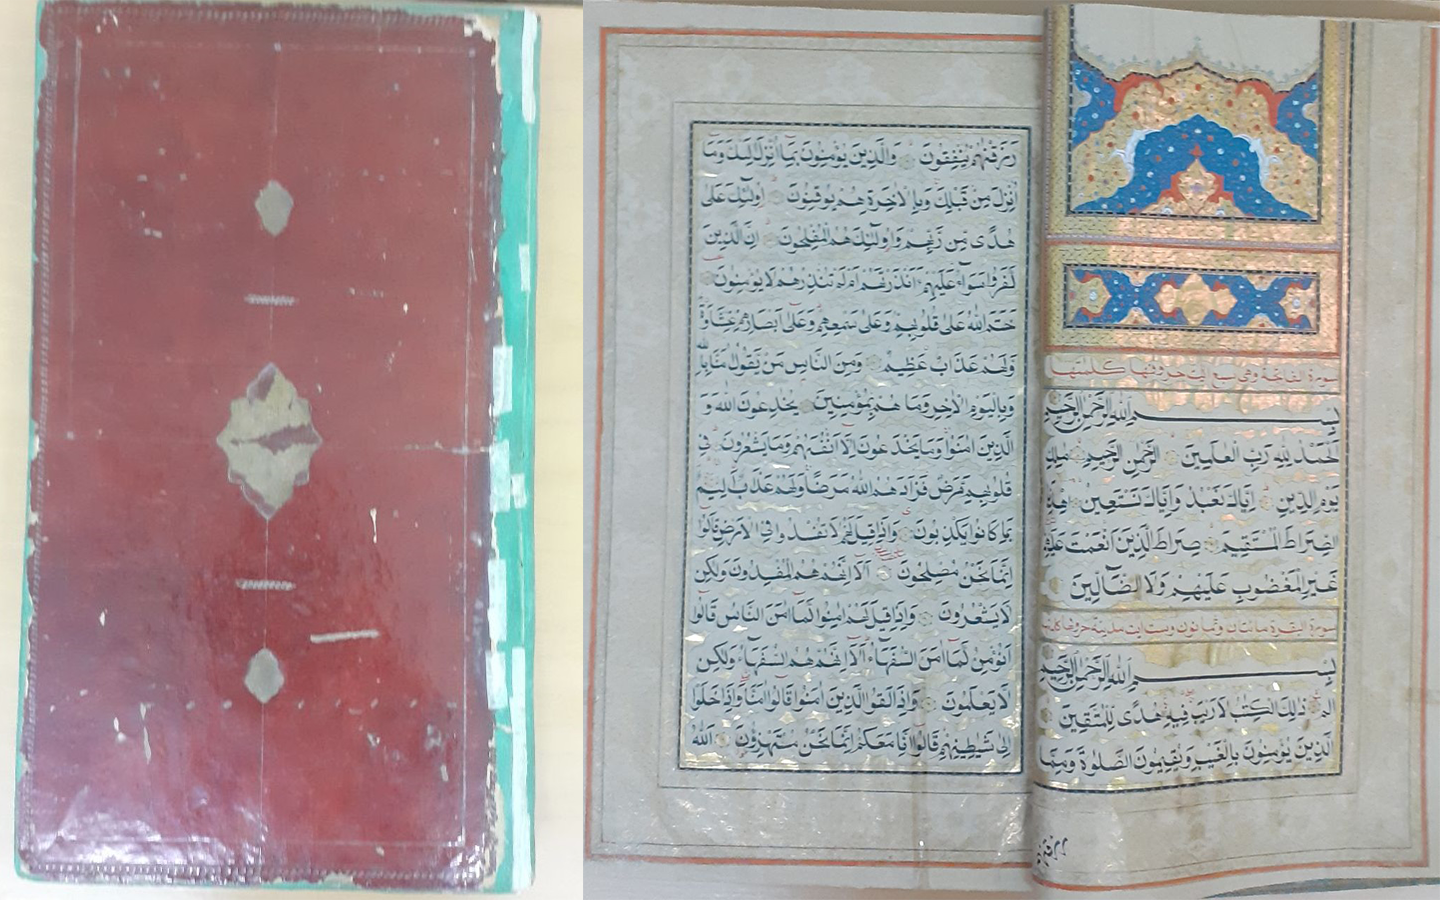 سورة الفاتحة وهي سبع آيات حروفها كلمتها
بسم الله الرحمن الرحيم
اَلْحَمْدُ لِلّٰهِ رَبِّ الْعٰلَمِينَ الرَّحْمٰنِ الرَّحِيمِ مٰلِكِ
يَوْمِ الدِّينِ اِيَّاكَ نَعْبُدُ وَاِيَّاكَ نَسْتَعِينُ اِهْدِنَا
الصِّرَاطَ الْمُسْتَقِيمَ صِرَاطَ الَّذِينَ اَنْعَمْتَ عَلَيْهِمْ
غَيْرِ الْمَغْضُوبِ عَلَيْهِمْ وَلَا الضَّالِّينَ
سورة البقرة مائتان وثمانون وست آيت مدينة حروفها كلمتها
بسم الله الرحمن الرحيم
الم ذٰلِكَ الْكِتٰبُ لَا رَيْبَ فِيهِ هُدًى لِلْمُتَّقِينَ
اَلَّذِينَ يُؤْمِنُونَ بِالْغَيْبِ وَيُقِيمُونَ الصَّلٰوةَ وَمِمَّا
رَزَقْنٰهُمْ يُنْفِقُونَ وَالَّذِينَ يُؤْمِنُونَ بِمَا اُنْزِلَ اِلَيْكَ وَمَا
اُنْزِلَ مِنْ قَبْلِكَ وَبِالْاٰخِرَةِ هُمْ يُوقِنُونَ اُولٰئِكَ عَلٰى
هُدًى مِنْ رَبِّهِمْ وَاُولٰئِكَ هُمُ الْمُفْلِحُونَ اِنَّ الَّذِينَ
كَفَرُوا سَوَاءٌ عَلَيْهِمْ ءَاَنْذَرْتَهُمْ اَمْ لَمْ تُنْذِرْهُمْ لَا يُؤْمِنُونَ
خَتَمَ اللهُ عَلٰى قُلُوبِهِمْ وَعَلٰى سَمْعِهِمْ وَعَلٰى اَبْصَارِهِمْ غِشَاوَةٌ
وَلَهُمْ عَذَابٌ عَظِيمٌ وَمِنَ النَّاسِ مَنْ يَقُولُ اٰمَنَّا بِاللهِ
وَبِالْيَوْمِ الْاٰخِرِ وَمَا هُمْ بِمُؤْمِنِينَ يُخٰدِعُونَ اللهَ وَ
الَّذِينَ اٰمَنُوا وَمَا يَخْدَعُونَ اِلَّا اَنْفُسَهُمْ وَمَا يَشْعُرُونَ فِي
قُلُوبِهِمْ مَرَضٌ فَزَادَهُمُ اللهُ مَرَضًا وَلَهُمْ عَذَابٌ اَلِيمٌ
بِمَا كَانُوا يَكْذِبُونَ وَاِذَا قِيلَ لَهُمْ لَا تُفْسِدُوا فِي الْاَرْضِ قَالُوا
اِنَّمَا نَحْنُ مُصْلِحُونَ اَلَا اِنَّهُمْ هُمُ الْمُفْسِدُونَ وَلٰكِنْ
لَا يَشْعُرُونَ وَاِذَا قِيلَ لَهُمْ اٰمِنُوا كَمَا اٰمَنَ النَّاسُ قَالُوا
اَنُؤْمِنُ كَمَا اٰمَنَ السُّفَهَاءُ اَلَا اِنَّهُمْ هُمُ السُّفَهَاءُ وَلٰكِنْ
لَا يَعْلَمُونَ وَاِذَا لَقُوا الَّذِينَ اٰمَنُوا قَالُوا اٰمَنَّا وَاِذَا خَلَوْا
اِلٰى شَيٰطِينِهِمْ قَالُوا اِنَّا مَعَكُمْ اِنَّمَا نَحْنُ مُسْتَهْزِؤُنَ اَللهُ